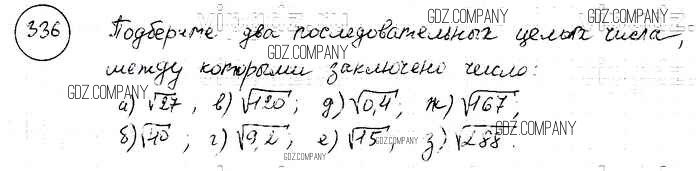 336 Подберите два последовательных целых числа,
между которыми заключено число:
а) √27, в) √120; д) √0,4; ж) √167;
б) √10; г) √9,2; е) √15; з) √288.
GDZ.COMPANY
GDZ.COMPANY
GDZ.COMPANY
GDZ.COMPANY
GDZ.COMPANY
GDZ.COMPANY
GDZ.COMPANY
GDZ.COMPANY